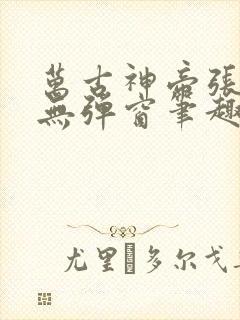 萬古神帝張
無彈窗筆趣
尤里 多尔戈